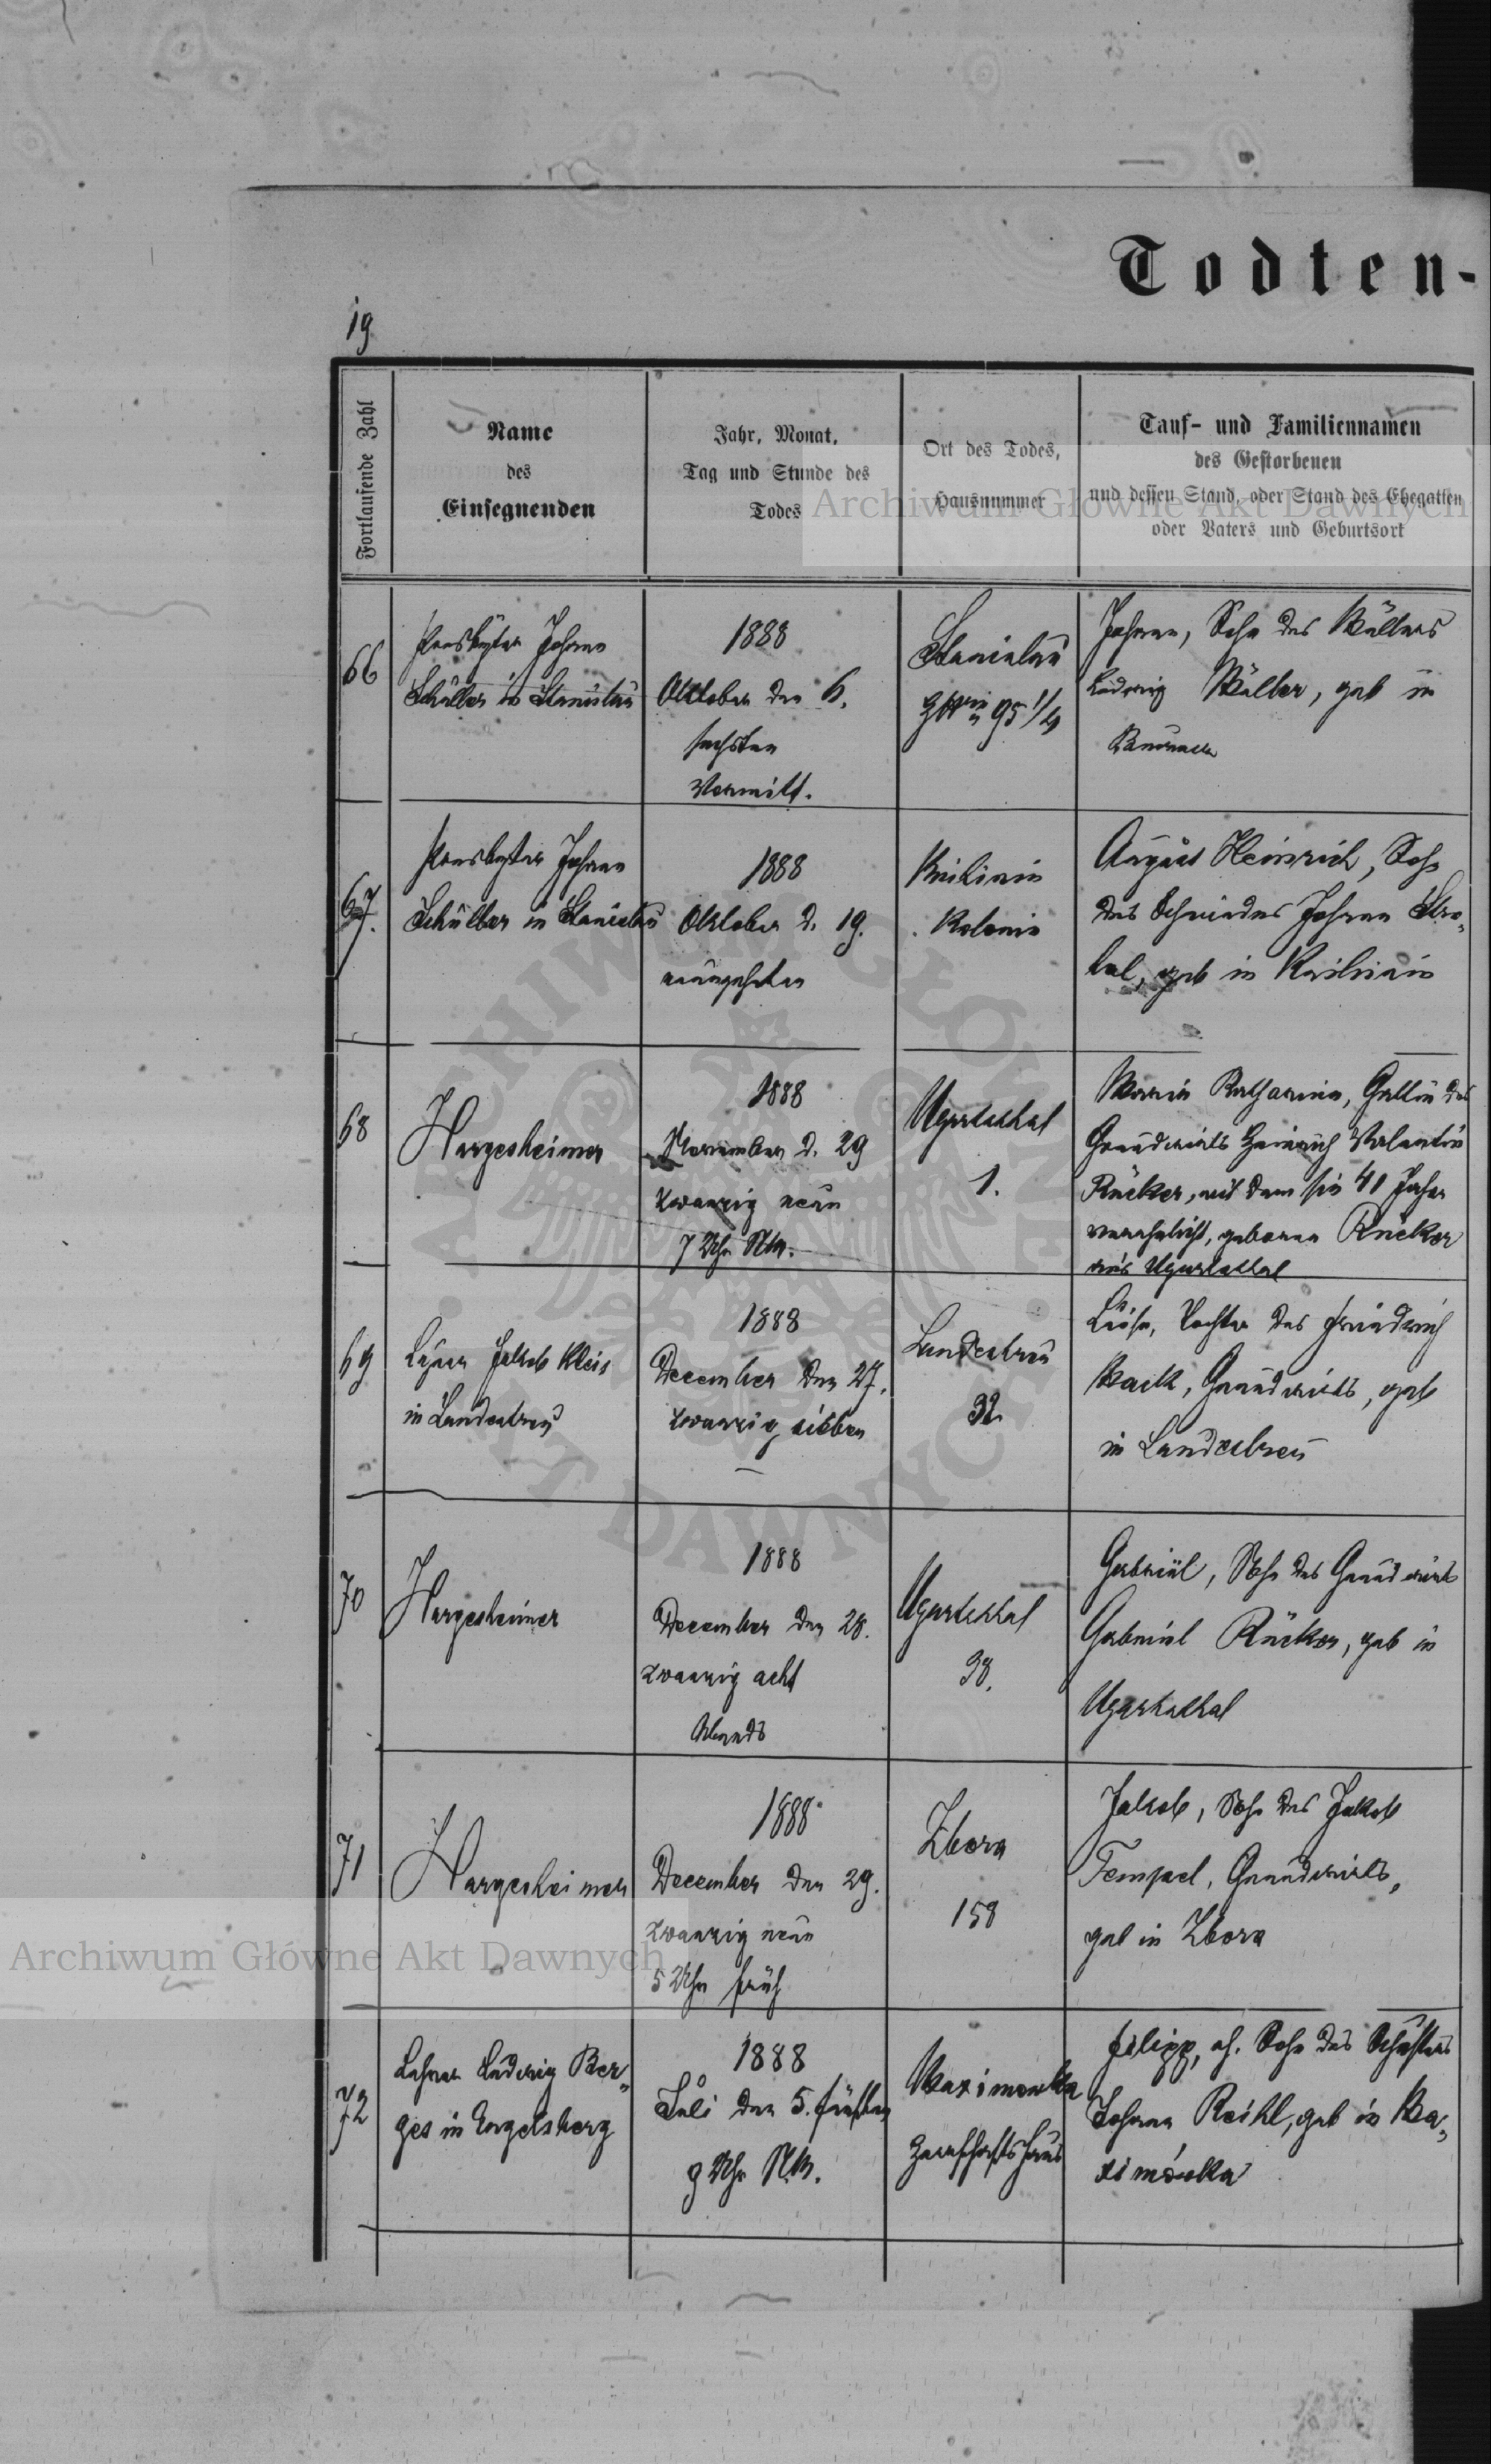 Todten-
19
Fortlaufende Zahl
Name
des
Einsegnenden
Jahr, Monat,
Tag und Stunde des
Todes
Ort des Todes,
Hausnummer
Tauf- und Familiennamen
des Gestorbenen
und dessen Stand, oder Stand des Ehegatten
oder Vaters und Geburtsort
66
Presbyter Johann
Schüller in Stanislau
1888
Oktober den 6.
sechsten
Vormitt.
Stanislau
95 1/4
Johann, Sohn des Müllers
Ludwig Müller, geb in
67.
Presbyter Johann
Schüller in Stanislau
1888
Oktober d. 19.
neunzehnten
Knihinin
Kolonie
August Heinrich, Sohn
des Schmiedes Johann Stro-
bal, geb in Knihinin
68
Hargesheimer
1888
November d. 29
zwanzig neun
7 Uhr NM.
Ugartsthal
1.
Maria Katharina, Gattin des
Grundwirts Heinrich Valentin
Rücker, mit dem sie 41 Jahre
verehelicht, geborene Rücker
aus Ugartsthal
69
Lehrer Jakob Kleis
in Landestreu
1888
December den 27.
zwanzig sieben
Landestreu
32
Luise, Tochter des Friedrich
Mack, Grundwirts, geb
in Landestreu
70
Hargesheimer
1888
December den 28.
zwanzig acht
Abends
Ugartsthal
38.
Gabriel, Sohn des Grundwirts
Gabriel Rücker, geb in
Ugartsthal
71
Hargesheimer
1888
December den 29.
zwanzig neun
5 Uhr früh
Zbora
158
Jakob, Sohn des Jakob
Tempel, Grundwirts,
geb in Zbora
72
Lehrer Ludwig Ber-
ges in Engelsberg
1888
Juli den 5. fünften
9 Uhr NM.
Maximowka
Herrschaftshaus
Filipp, eh. Sohn des
Johann Reihl, geb in Ma-
ximówka
Archiwum Główne Akt Dawnych
Archiwum Główne Akt Dawnych
ARCHIWUM GŁÓWNE AKT DAWNYCH